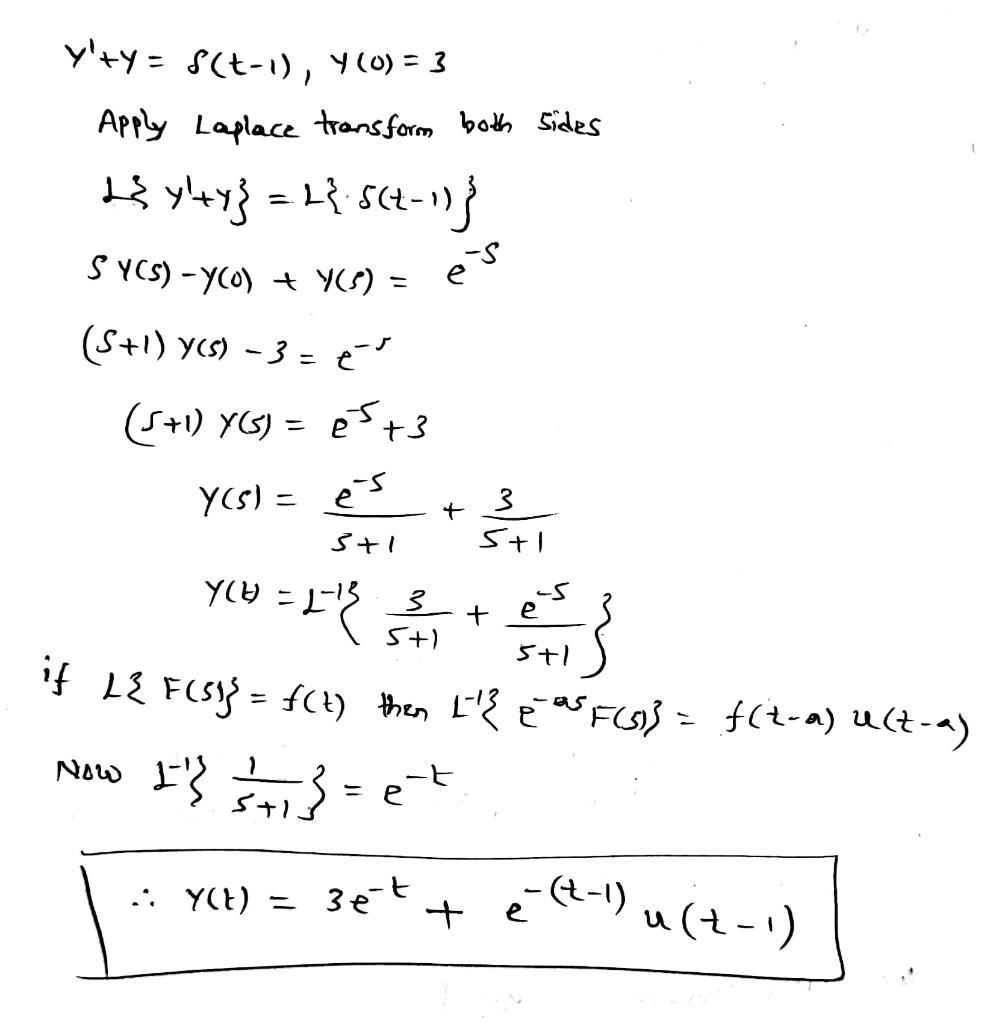 y'+y = δ(t-1), y(0) = 3
Apply Laplace transform both sides
L{ y'+y} = L{ δ(t-1)}
S Y(S) - y(0) + Y(S) = e^-S
(S+1) Y(S) - 3 = e^-s
(S+1) Y(S) = e^-S + 3
Y(S) = e^-S/(S+1) + 3/(S+1)
Y(t) = L^-1{ 3/(S+1) + e^-S/(S+1) }
if L{ F(S)} = f(t) then L^-1{ e^-as F(S)} = f(t-a) u(t-a)
Now L^-1{ 1/(S+1) } = e^-t
∴ Y(t) = 3e^-t + e^-(t-1) u(t-1)